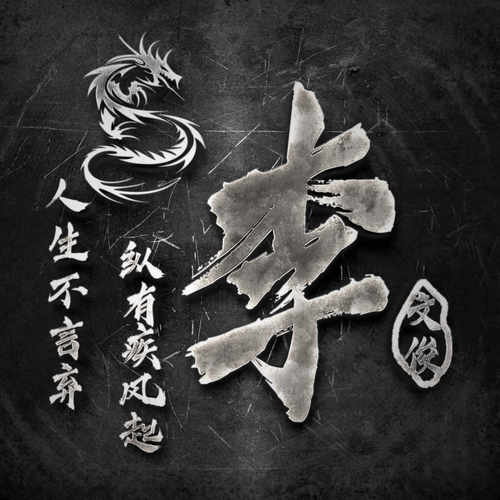 李
文俊
纵有疾风起
人生不言弃